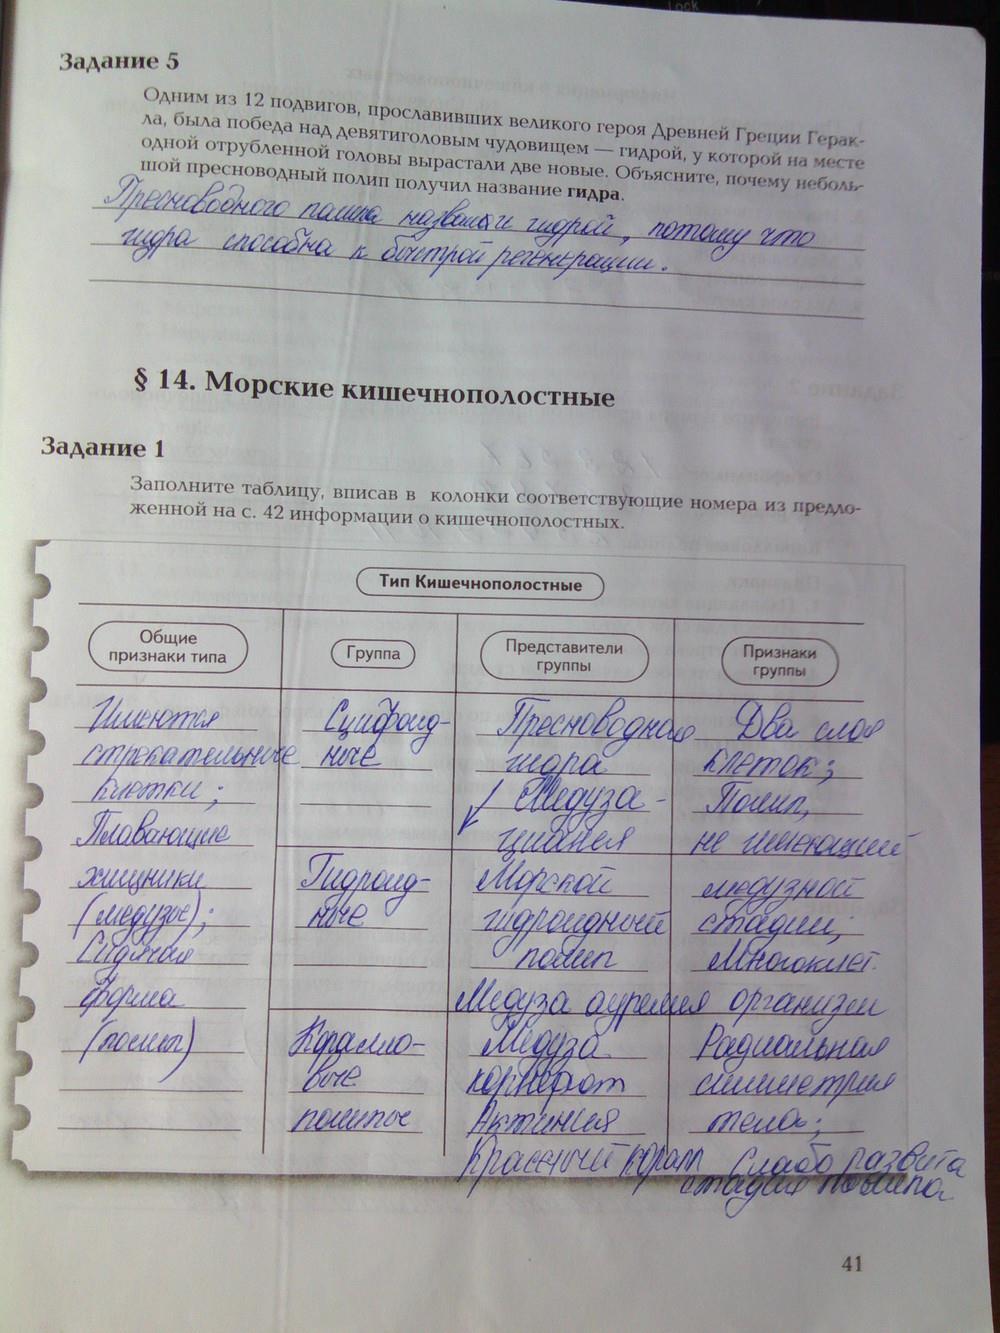 Задание 5
Одним из 12 подвигов, прославивших великого героя Древней Греции Герак-
ла, была победа над девятиголовым чудовищем — гидрой, у которой на месте
одной отрубленной головы вырастали две новые. Объясните, почему неболь-
шой пресноводный полип получил название гидра.
Пресноводного полипа назвали гидрой, потому что
гидра способна к быстрой регенерации.
§ 14. Морские кишечнополостные
Задание 1
Заполните таблицу, вписав в колонки соответствующие номера из предло-
женной на с. 42 информации о кишечнополостных.
Тип Кишечнополостные
Общие признаки типа
Группа
Представители группы
Признаки группы
Имеются Сцифоид- Пресноводная Два слоя
стрекательные ные гидра клеток;
клетки; Медуза- Полип,
Плавающие цианея не имеющий
хищники Гидроид- Морской медузной
(медузы); ные гидроидный стадии;
Сидячая полип Многоклет.
форма Медуза аурелия организм
(полип) Коралло- Медуза Радиальная
вые корнерот симметрия
полипы Актиния тела;
Красный коралл Слабо развита
стадия полипа
41